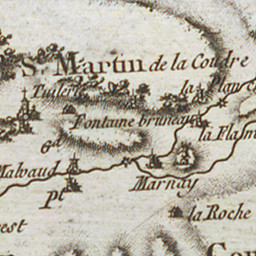 St. Martin de la Coudre
Tuilerie
la Plan
Fontaine bruneau
la Flam
Gd
Malvaud
Marnay
Pt
la Roche
est
Cou